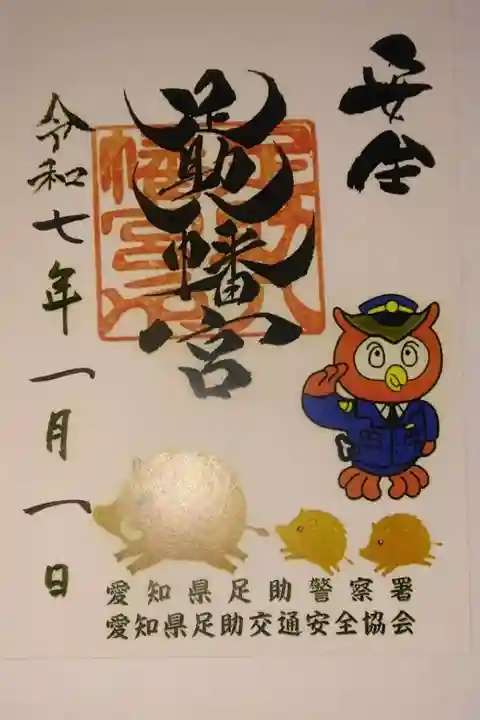 安全
足助八幡宮
令和七年一月一日
愛知県足助警察署
愛知県足助交通安全協会